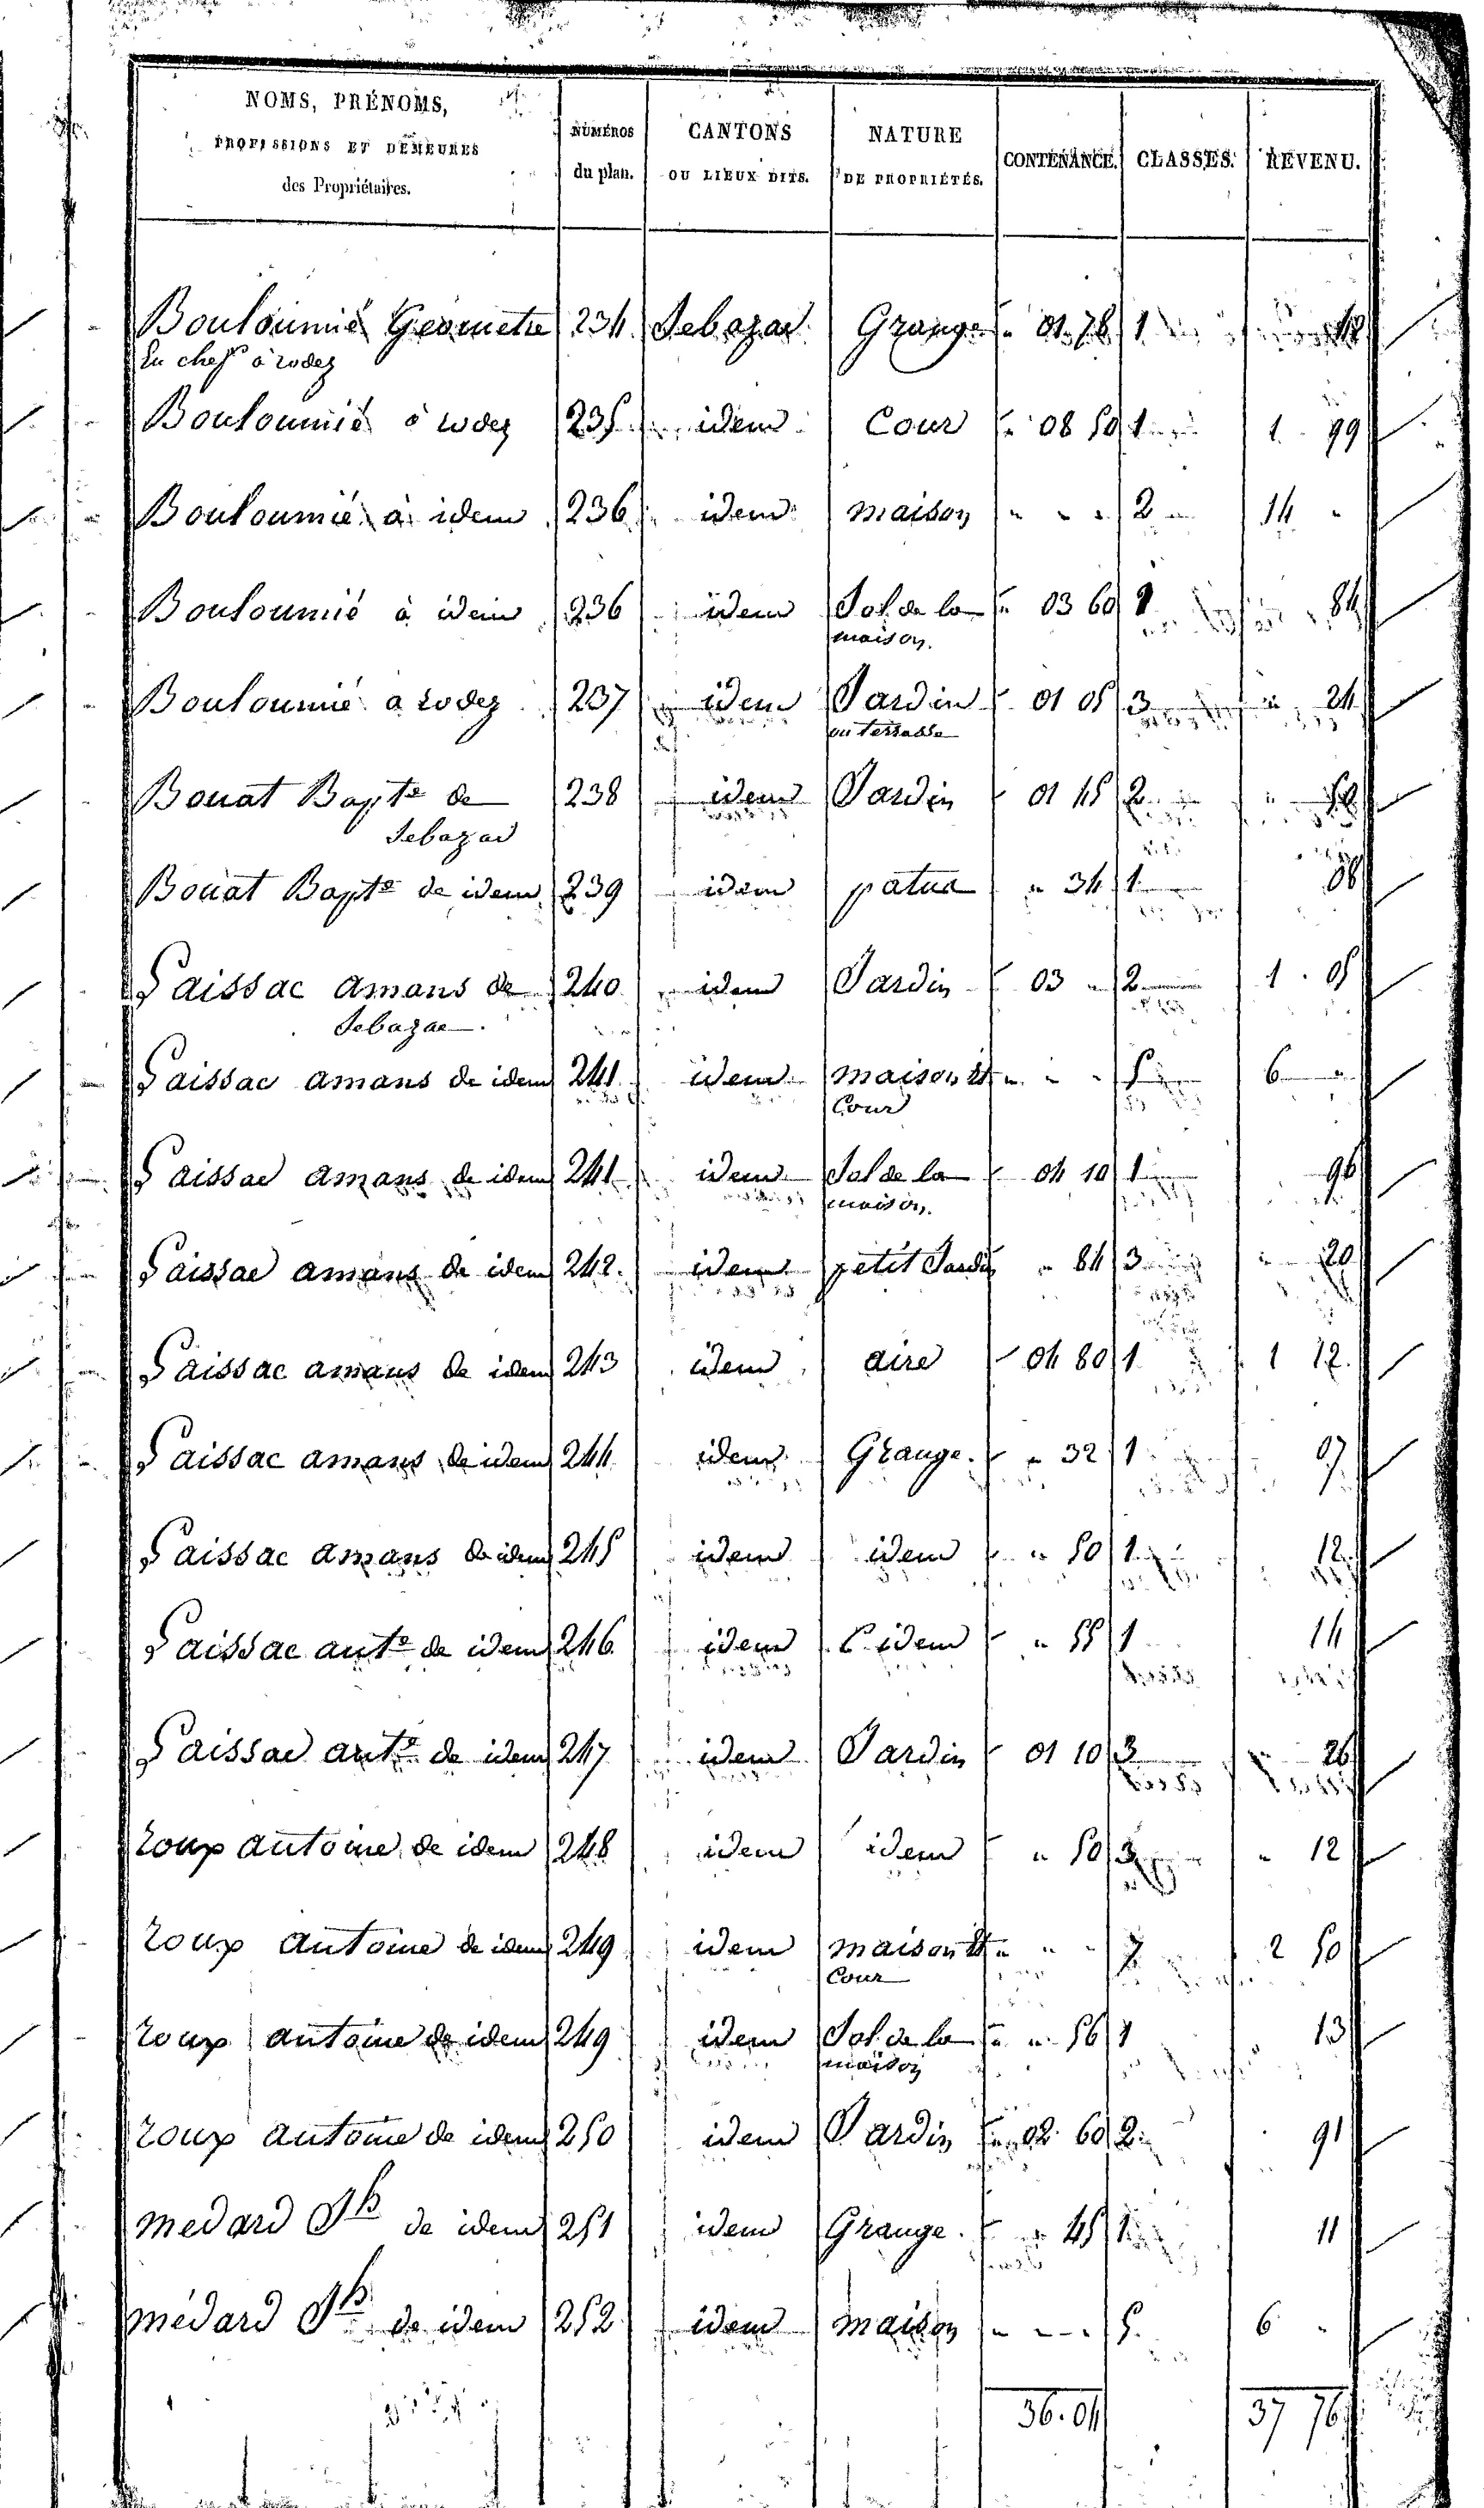 NOMS, PRÉNOMS,
PROFESSIONS ET DEMEURES
des Propriétaires.
NUMÉROS
du plan.
CANTONS
OU LIEUX DITS.
NATURE
DE PROPRIÉTÉS.
CONTENANCE. CLASSES. REVENU.
Bouloumié Géometre 234 Sebazac Grange " 01 78 1 42
En chef à rodez
Bouloumié à rodez 235 idem Cour " 08 50 1 1 99
Bouloumié à idem 236 idem maison " " " 2 14 "
Bouloumié à idem 236 idem Sol de la " 03 60 1 84
maison
Bouloumié à rodez 237 idem Jardin " 01 05 3 " 24
ou terrasse
Bouat Bapte de 238 idem Jardin " 01 45 2 " 50
Sebazac
Bouat Bapte de idem 239 idem patus " 34 1 08
Saissac amans de 240 idem Jardin " 03 " 2 1 05
Sebazac
Saissac amans de idem 241 idem maison et " " " 5 6 "
Cour
Saissac amans de idem 241 idem Sol de la " 04 10 1 96
maison
Saissac amans de idem 242 idem petit Jardin " 84 3 " 20
Saissac amans de idem 243 idem aire " 04 80 1 1 12
Saissac amans de idem 244 idem Grange " " 32 1 07
Saissac amans de idem 245 idem idem " " 50 1 12
Saissac ante de idem 246 idem idem " " 55 1 14
Saissac ante de idem 247 idem Jardin " 01 10 3 " 26
roux antoine de idem 248 idem idem " " 50 3 " 12
roux antoine de idem 249 idem maison et " " " 7 2 50
Cour
roux antoine de idem 249 idem Sol de la " " 56 1 13
maison
roux antoine de idem 250 idem Jardin " 02 60 2 91
medard Jh de idem 251 idem Grange " " 45 1 11
médard Jh de idem 252 idem maison " " " 5 6 "
36.04 37 76